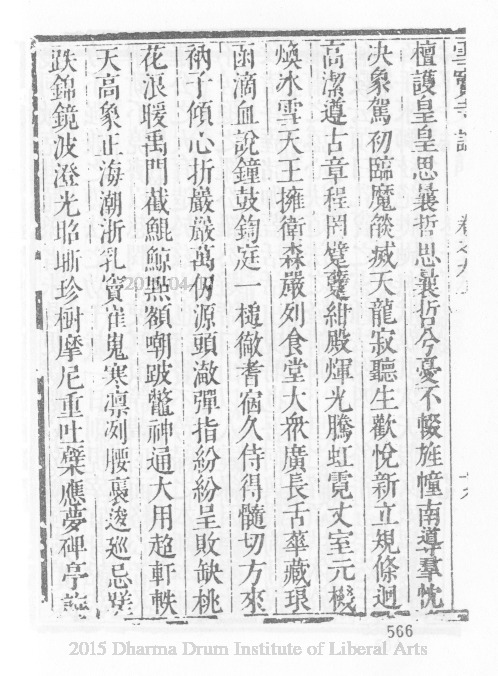 雲寶寺誌
檀護皇皇思曩哲思曩哲兮憂不惙旌幢南導羣忱
决象駕初臨魔燄滅天龍寂聽生歡悅新立規條迥
高潔遵古章程罔躄躠紺殿煇光騰虹霓丈室元機
煥冰雪天王擁衛森嚴列食堂大衆廣長舌華藏琅
函滴血說鐘鼓鍧庭一槌徹耆宿久侍得髓切方來
衲子傾心折巖巖萬仞源頭澈彈指紛紛呈敗缺桃
花浪暖禹門截鯤鯨點額嘲跛鼈神通大用超軒軼
天高象正海潮浙乳竇崔嵬寒凛冽腰褭逡巡忌蹉
跌錦鏡波澄光昭晣珍樹摩尼重吐櫱應夢碑亭
566
2015 Dharma Drum Institute of Liberal Arts